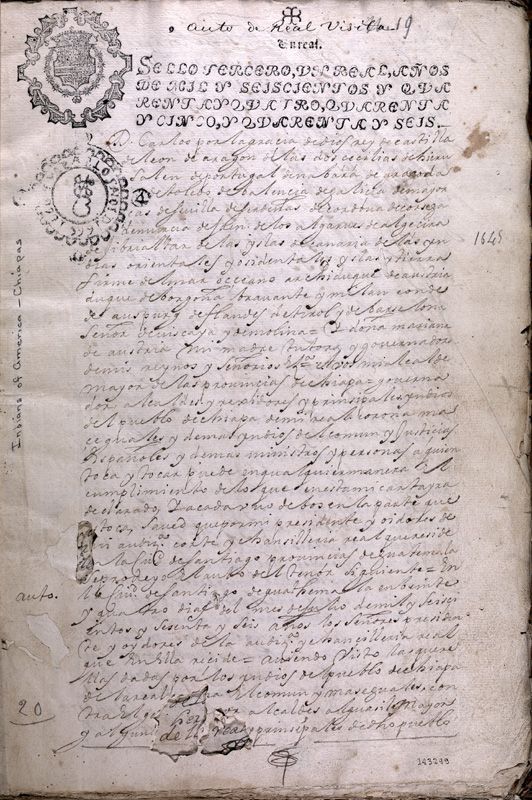 auto de Real Visita 19
Un real.
SELLO TERCERO, VN REAL, AÑOS
DE MIL Y SEISCIENTOS Y QVA
RENTA Y QVATRO, QVARENTA
Y CINCO, Y QVARENTA Y SEIS.
D. Carlos por la gracia de dios rey de castilla
de leon de aragon de las dos cecilias de hieru
salen de portugal de nabara de granada
de toledo de balencia de galicia de mayor
cas de sevilla de serdeña de cordova de corsega
de murcia de jaen de los algarves de algecira
de gibraltar de las yslas de canaria de las yn
dias orientales y osidentales yslas y tierra
firme del mar occeano archiduque de austria
duque de borgoña bravante y milan conde
de auspurg de flandes de tirol y de barselona
señor de viscaya y de molina = Y doña mariana
de austria su madre tutora y governadora
de mis reynos y señorios = A vos mi alcal de
mayor de las provincias de chiapa = governa
dor alcaldes y rexidores y prinsipales yndios
del pueblo de chiapa de mi real corona ma
ceguales y demas yndios del comun y justicias
españoles y demas ministros y personas a quien
toca y tocar puede en qualquier manera el
cumplimiento de lo que en esta mi carta yra
declarado, a cada uno de vos en la parte que
toca, saved que por mi presidente y oidores de
mi audiª corte y chansilleria real que reside
en la ciud de santiago provincias de guatemala
se proveyo el auto del tenor siguiente = En
la ciud de santiago de guathemala en beinte
y quatro dias del mes de jullio de mil y seiscie
entos y sesenta y seis años los señores preside
te y oydores de la audiª y chancilleria real
que en ella recide = aviendo visto las quere
llas dadas por los yndios del pueblo de chiapa
de la real corona el comun y maseguales con
tra el alcaldes alguasil mayor
y algun prinsipales de dho pueblo
1645
Indians of America - Chiapas
auto.
20
143249